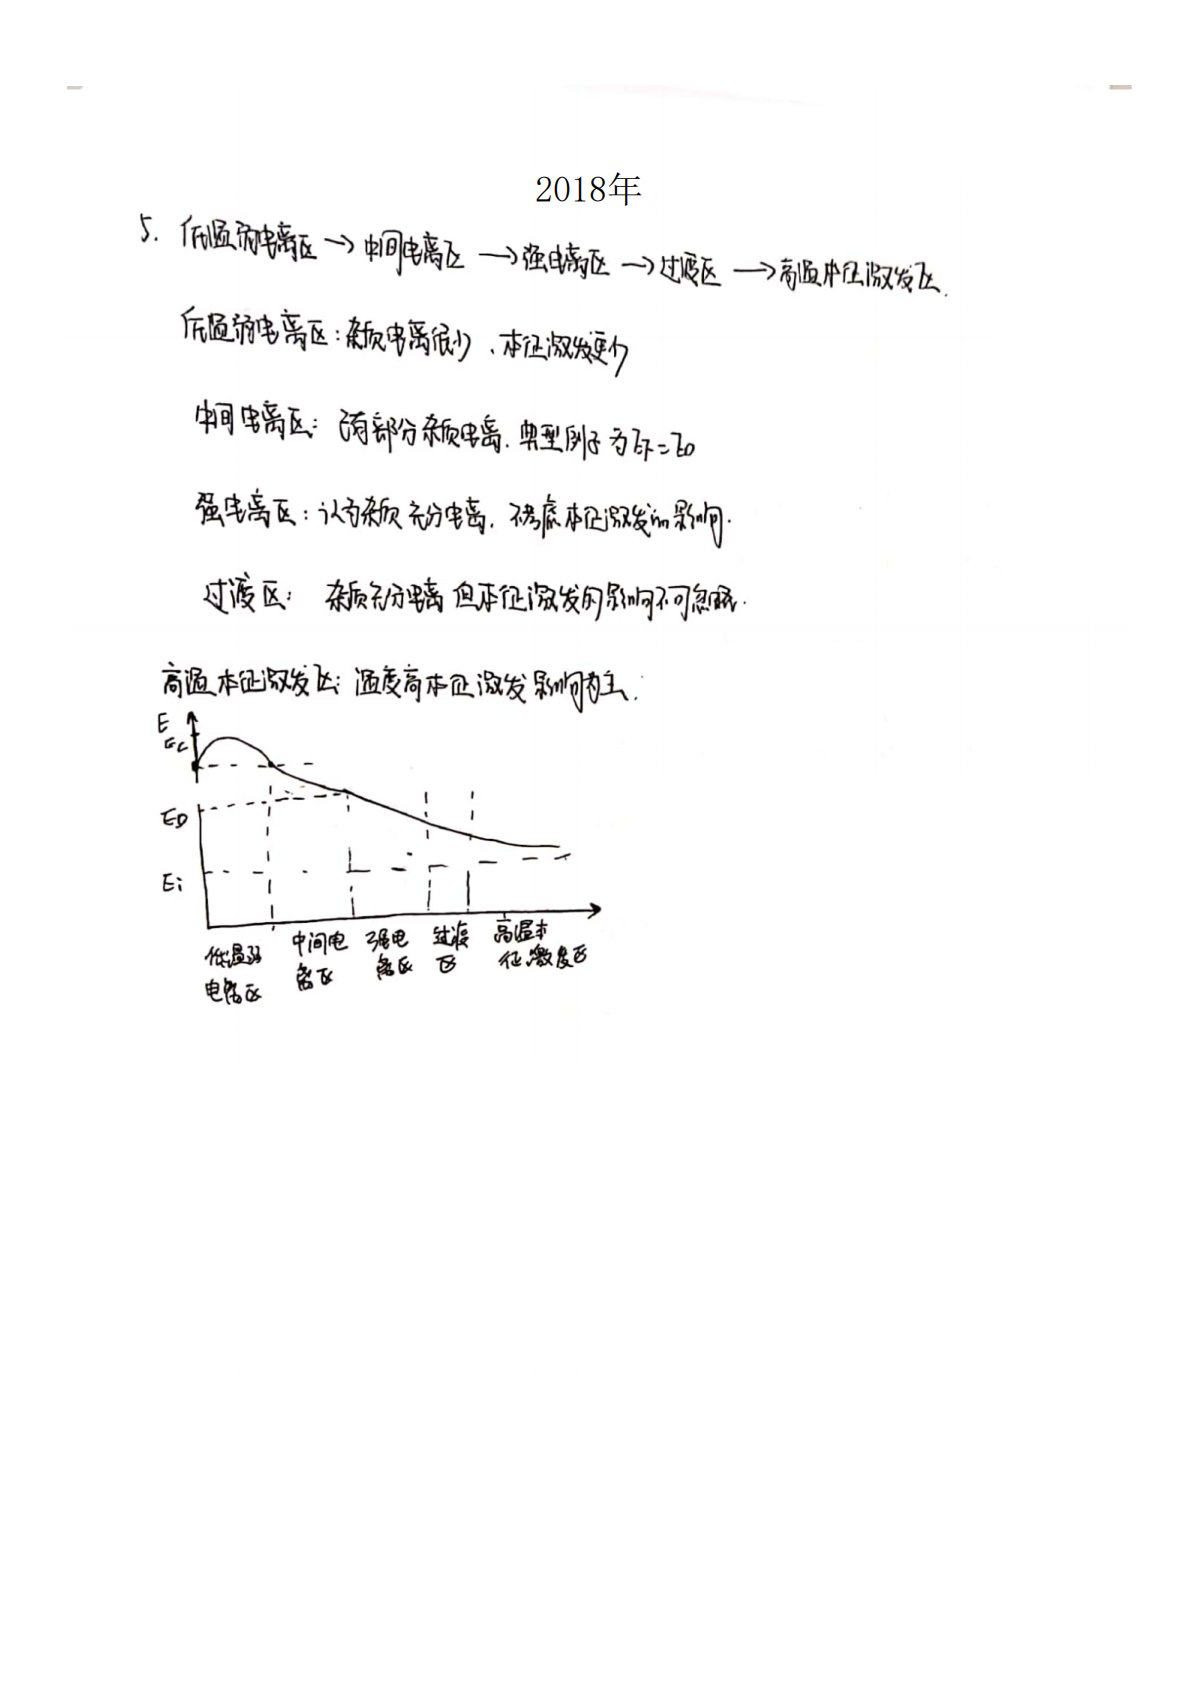 2018年
5. 低温弱电离区→中间电离区→强电离区→过渡区→高温本征激发区.
低温弱电离区:杂质电离很少、本征激发更少
中间电离区: 已有部分杂质电离. 典型例子为EF=ED
强电离区:认为杂质充分电离. 不考虑本征激发的影响.
过渡区: 杂质充分电离但本征激发的影响不可忽略.
高温本征激发区:温度高本征激发影响为主.
E
Ec
ED
Ei
低温弱
电离区
中间电
离区
强电
离区
过渡
区
高温本
征激发区